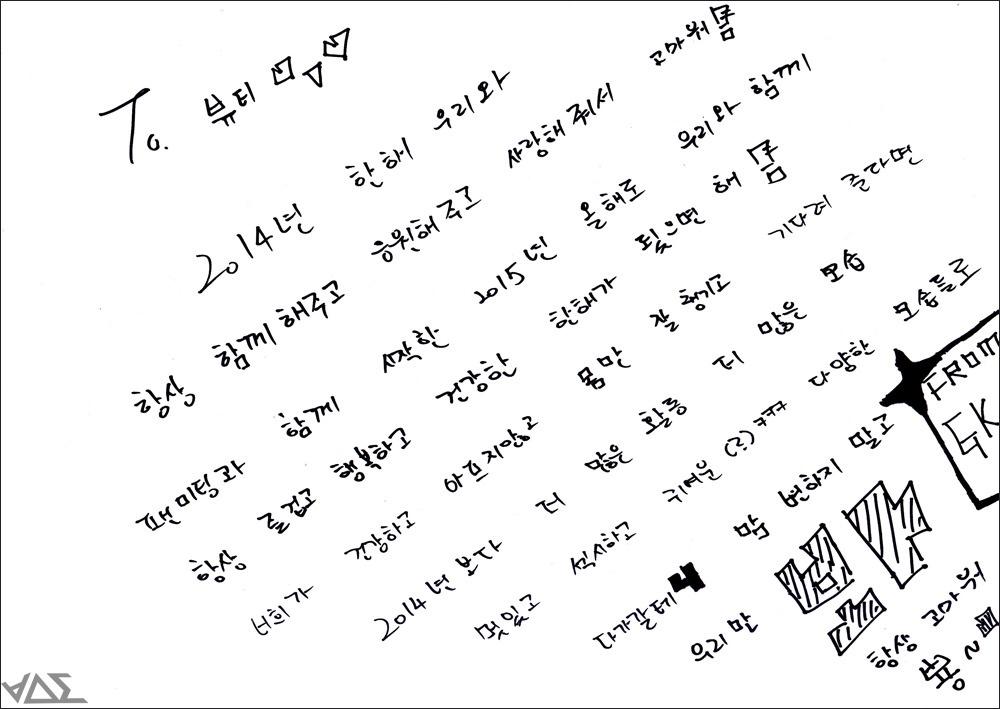 To. 뷰티
2014년 한해 우리와
항상 함께 해주고 응원해 주고 사랑해 줘서 고마워
팬미팅과 함께 시작한 2015년 올해도 우리와 함께
항상 즐겁고 행복하고 건강한 한해가 됬으면 해
너희가 건강하고 아프지않고 몸만 잘 챙기고 기다려 준다면
2014년 보다 더 많은 활동 더 많은 모습
멋있고 섹시하고 귀여운(?)ㅋㅋㅋ 다양한 모습들로
다가갈테니 맘 변하지 말고
우리만
항상 고마워
뿅~
FROM
GK